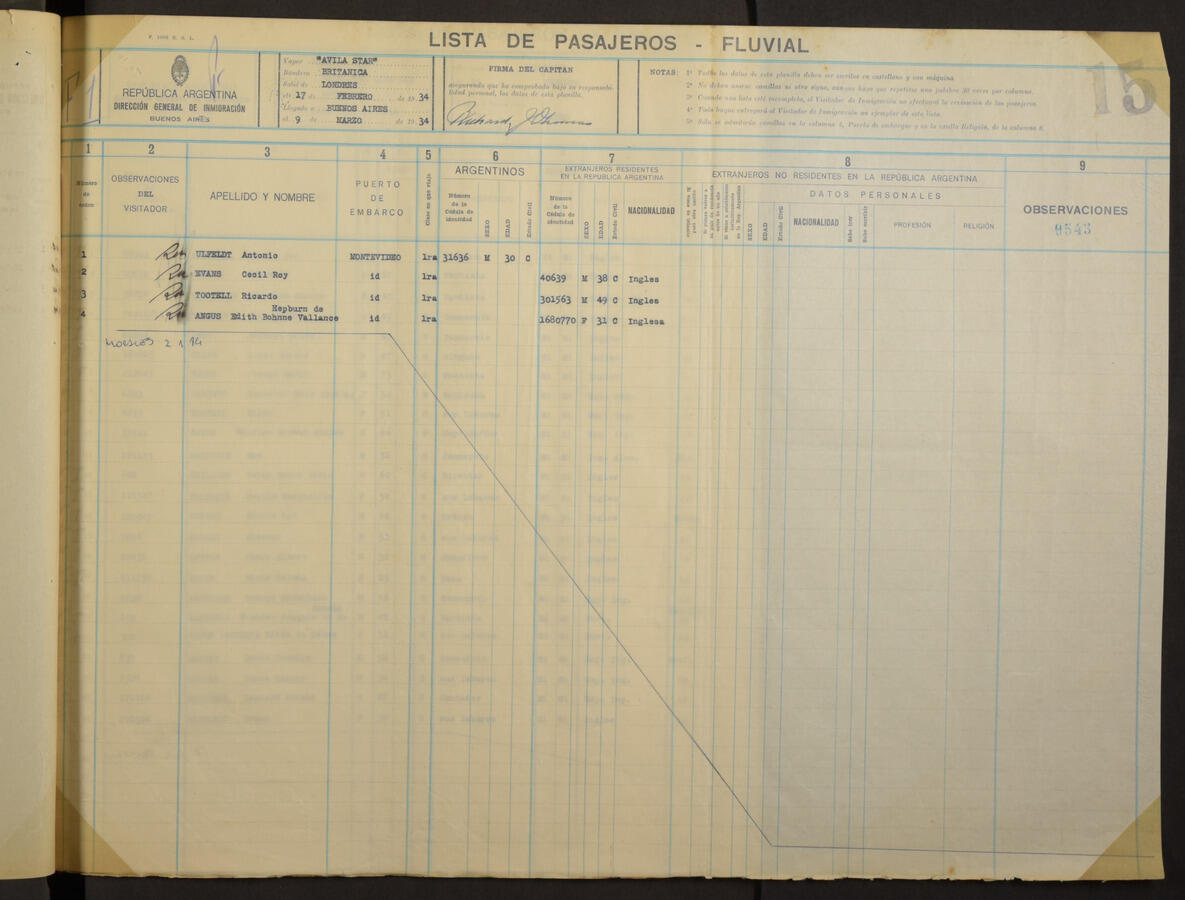 LISTA DE PASAJEROS - FLUVIAL
15
REPÚBLICA ARGENTINA
DIRECCIÓN GENERAL DE INMIGRACIÓN
BUENOS AIRES
Vapor "AVILA STAR"
Bandera BRITANICA
Salió de LONDRES
el 17 de FEBRERO de 1934
Llegado a BUENOS AIRES
el 9 de MARZO de 1934
FIRMA DEL CAPITAN
asegurando que ha comprobado bajo su responsabilidad personal, los datos de esta planilla.
NOTAS: 1º Todos los datos de esta planilla deben ser escritos en castellano y con máquina.
3º Cuando una lista esté incompleta, el Visitador de Inmigración no efectuará la revisación de los pasajeros.
4º Todo buque entregará al Visitador de Inmigración un ejemplar de esta lista.
1 2 3 4 5 6 7 8 9
Número de orden
OBSERVACIONES DEL VISITADOR
APELLIDO Y NOMBRE
PUERTO DE EMBARCO
Clase en que viajó
ARGENTINOS
Número de la Cédula de identidad
SEXO
EDAD
Estado Civil
EXTRANJEROS RESIDENTES EN LA REPUBLICA ARGENTINA
Número de la Cédula de identidad
SEXO
EDAD
Estado Civil
NACIONALIDAD
EXTRANJEROS NO RESIDENTES EN LA REPÚBLICA ARGENTINA
DATOS PERSONALES
SEXO
EDAD
Estado Civil
NACIONALIDAD
Sabe leer
Sabe escribir
PROFESIÓN
RELIGIÓN
OBSERVACIONES
9543
1 ULFELDT Antonio MONTEVIDEO 1ra 31636 M 30 C
2 EVANS Cecil Roy id 1ra 40639 M 38 C Ingles
3 TOOTELL Ricardo id 1ra 301563 M 49 C Ingles
Hepburn de
4 ANGUS Edith Bohnne Vallance id 1ra 1680770 F 31 C Inglesa